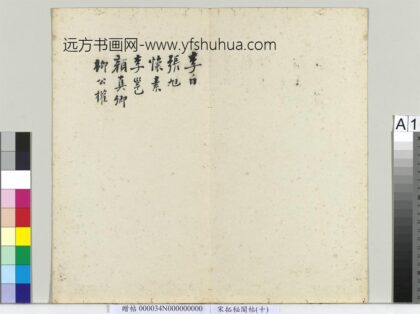 远方书画网-www.yfshuhua.com
李白
張旭
懷素
李邕
顏真卿
柳公權
A 1
赠帖 000034N000000000
宋拓秘閣帖(十)